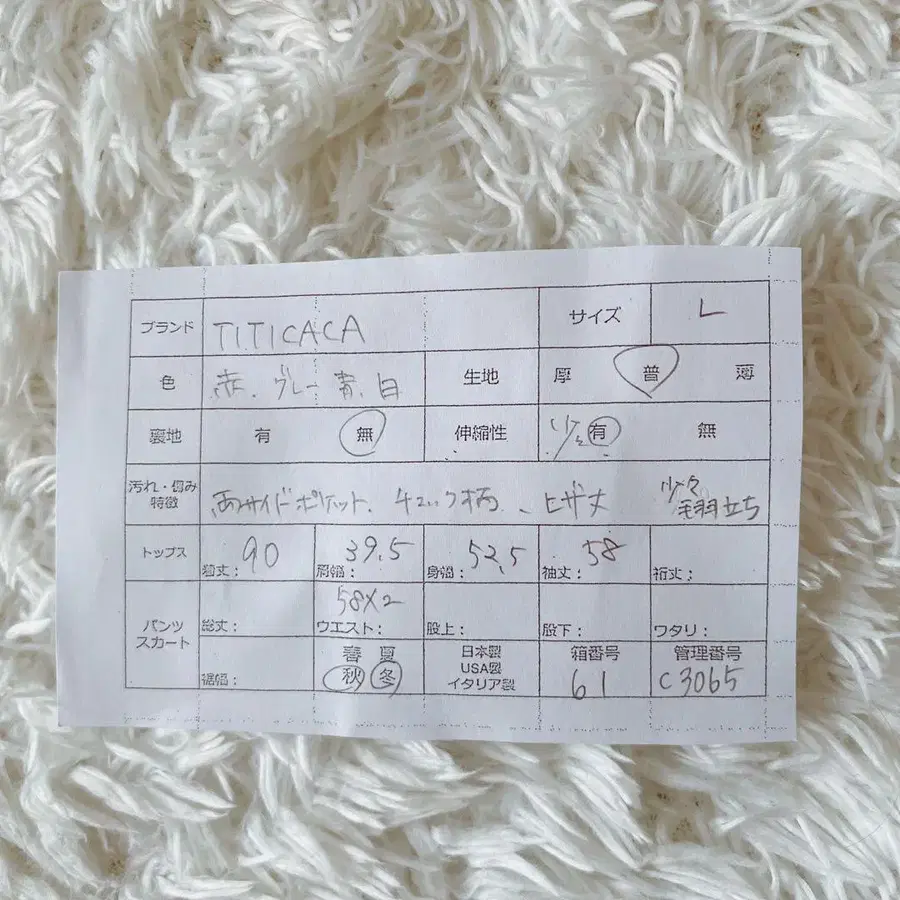 ブランド TITICACA サイズ L
色 赤、グレー 青、白 生地 厚 普 薄
裏地 有 無 伸縮性 少々 有 無
汚れ・傷み 特徴 両サイドポケット、チェック柄、ヒザ丈 少々 毛羽立ち
トップス 着丈: 90 肩幅: 39.5 身幅: 52.5 袖丈: 58 裄丈:
パンツ スカート 総丈: ウエスト: 58×2 股上: 股下: ワタリ:
裾幅: 春 夏 秋 冬 日本製 USA製 イタリア製 箱番号 61 管理番号 C3065